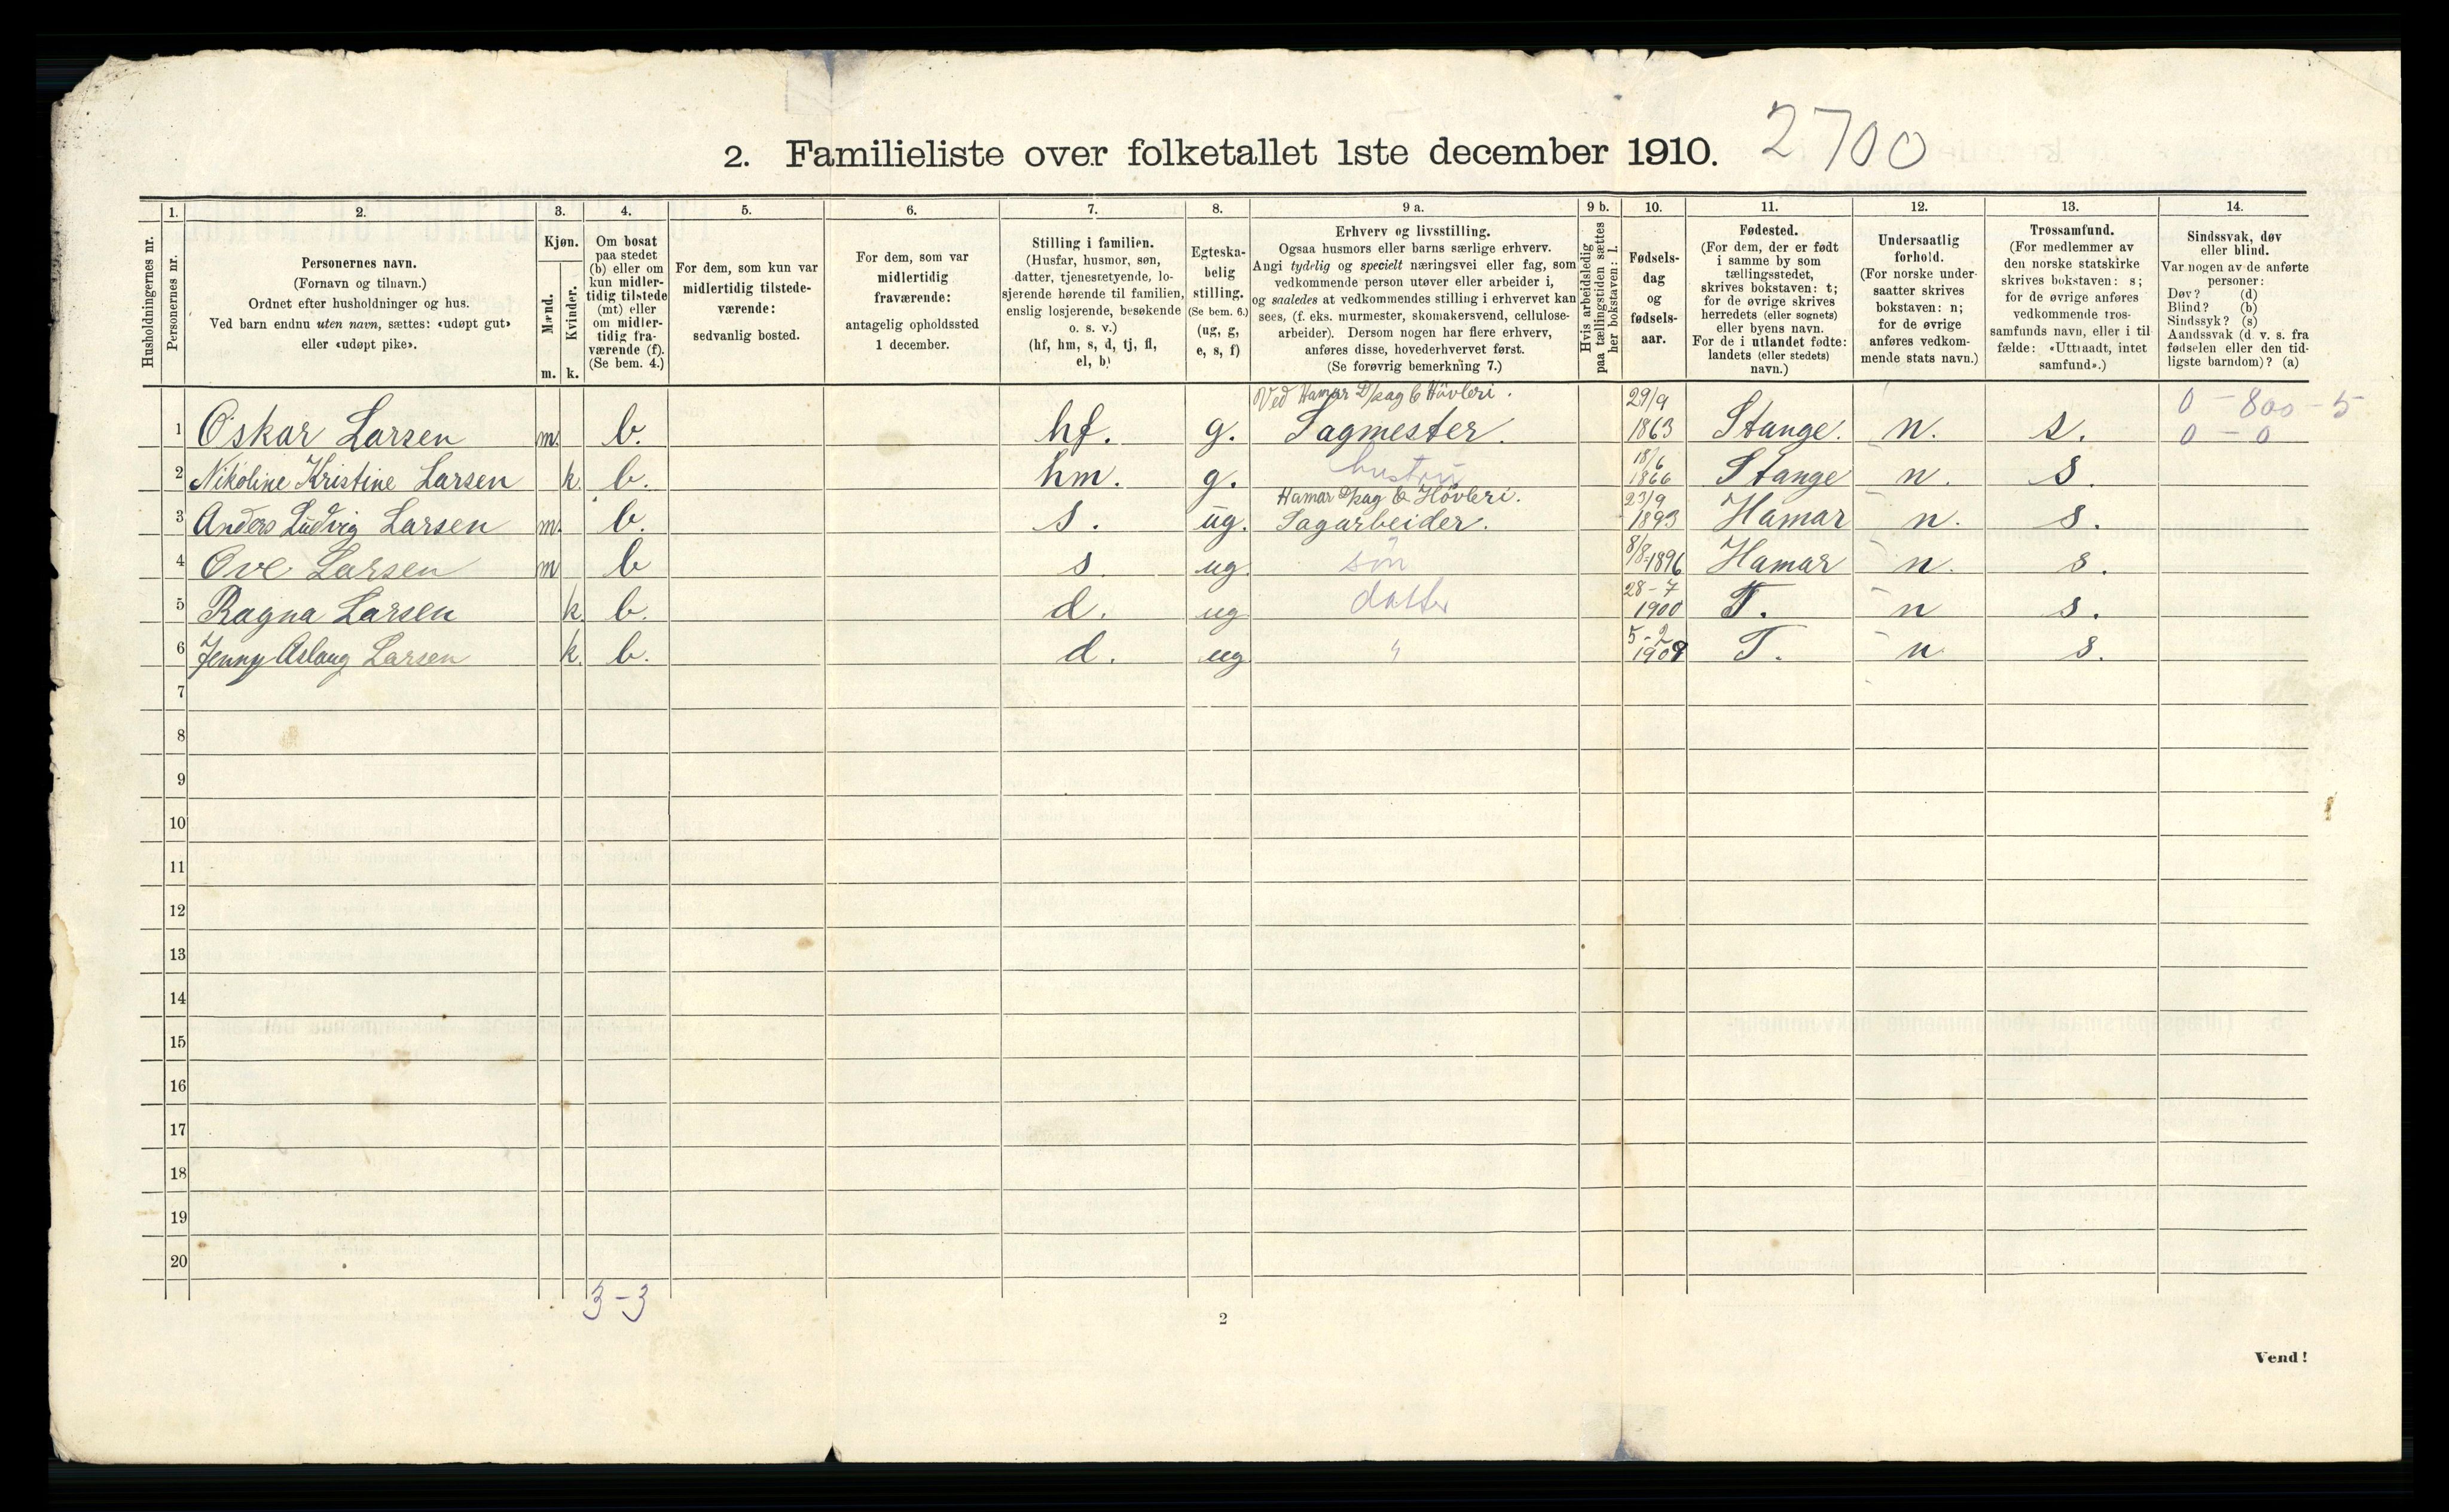 2. Familieliste over folketallet 1ste december 1910. 2700
Husholdningernes nr.
1.
Personernes nr.
2.
Personernes navn.
(Fornavn og tilnavn.)
Ordnet efter husholdninger og hus.
Ved barn endnu uten navn, sættes: «udøpt gut»
eller «udøpt pike».
3.
Kjøn.
Mænd.
Kvinder.
m. k.
4.
Om bosat
paa stedet
(b) eller om
kun midler-
tidig tilstede
(mt) eller
om midler-
tidig fra-
værende (f).
(Se bem. 4.)
5.
For dem, som kun var
midlertidig tilstede-
værende:
sedvanlig bosted.
6.
For dem, som var
midlertidig
fraværende:
antagelig opholdssted
1 december.
7.
Stilling i familien.
(Husfar, husmor, søn,
datter, tjenestetyende, lo-
sjerende hørende til familien,
enslig losjerende, besøkende
o. s. v.)
(hf, hm, s, d, tj, fl,
el, b)
8.
Egteska-
belig
stilling.
(Se bem. 6.)
(ug, g,
e, s, f)
9 a.
Erhverv og livsstilling.
Ogsaa husmors eller barns særlige erhverv.
Angi tydelig og specielt næringsvei eller fag, som
vedkommende person utøver eller arbeider i,
og saaledes at vedkommendes stilling i erhvervet kan
sees, (f. eks. murmester, skomakersvend, cellulose-
arbeider). Dersom nogen har flere erhverv,
anføres disse, hovederhvervet først.
(Se forøvrig bemerkning 7.)
9 b.
Hvis arbeidsledig
paa tællingstiden sættes
her bokstaven: l.
10.
Fødsels-
dag
og
fødsels-
aar.
11.
Fødested.
(For dem, der er født
i samme by som
tællingsstedet,
skrives bokstaven: t;
for de øvrige skrives
herredets (eller sognets)
eller byens navn.
For de i utlandet fødte:
landets (eller stedets)
navn.)
12.
Undersaatlig
forhold.
(For norske under-
saatter skrives
bokstaven: n;
for de øvrige
anføres vedkom-
mende stats navn.)
13.
Trossamfund.
(For medlemmer av
den norske statskirke
skrives bokstaven: s;
for de øvrige anføres
vedkommende tros-
samfunds navn, eller i til-
fælde: «Uttraadt, intet
samfund».)
14.
Sindssvak, døv
eller blind.
Var nogen av de anførte
personer:
Døv? (d)
Blind? (b)
Sindssyk? (s)
Aandssvak (d. v. s. fra
fødselen eller den tid-
ligste barndom)? (a)
Ved Hamar D/sag & Hövleri. 29/9 0 – 800 – 5
1 Oskar Larsen m. b. hf. g. Sagmester. 1863 Stange. n. s. 0 – 0
18/6
2 Nikoline Kristine Larsen k. b. hm. g. hustru 1866 Stange n. s.
Hamar D/sag & Hövleri. 23/9
3 Anders Ludvig Larsen m. b. s. ug. Sagarbeider. 1893 Hamar n. s.
4 Ove Larsen m b s. ug. søn 8/8-1896 Hamar n. s.
28-7
5 Ragna Larsen k. b. d. ug. datter 1900 T. n s.
5-2
6 Jenny Aslaug Larsen k. b. d. ug " 1909 T. n s.
7
8
9
10
11
12
13
14
15
16
17
18
19
20
3-3
2
Vend!